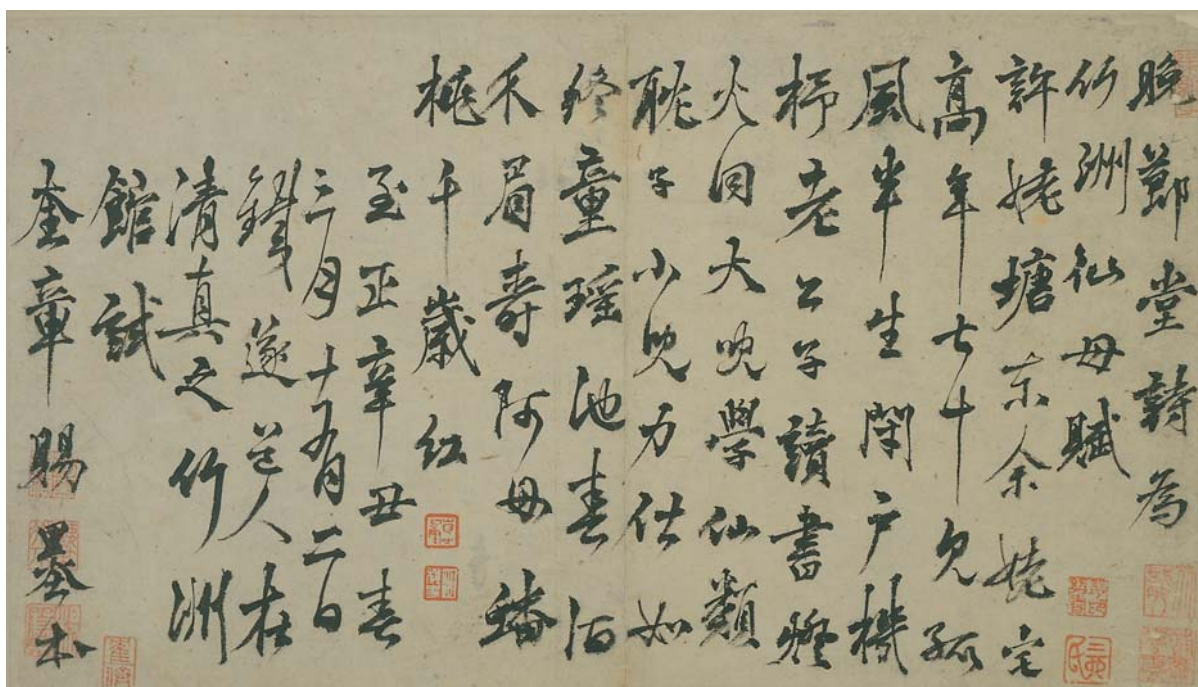 晚節堂詩為
竹洲仙母賦
許姥塘東余姥宅
高年七十九孤
風半生閉戶機
杼老公子讀書燈
火同大兒學仙類
耽子小兒力仕如
終童瑤池春酒
禾眉壽阿母蟠
桃千歲紅
至正辛丑春
三月十有二日
鐵篴道人在
清真之竹洲
館試
奎章賜墨本